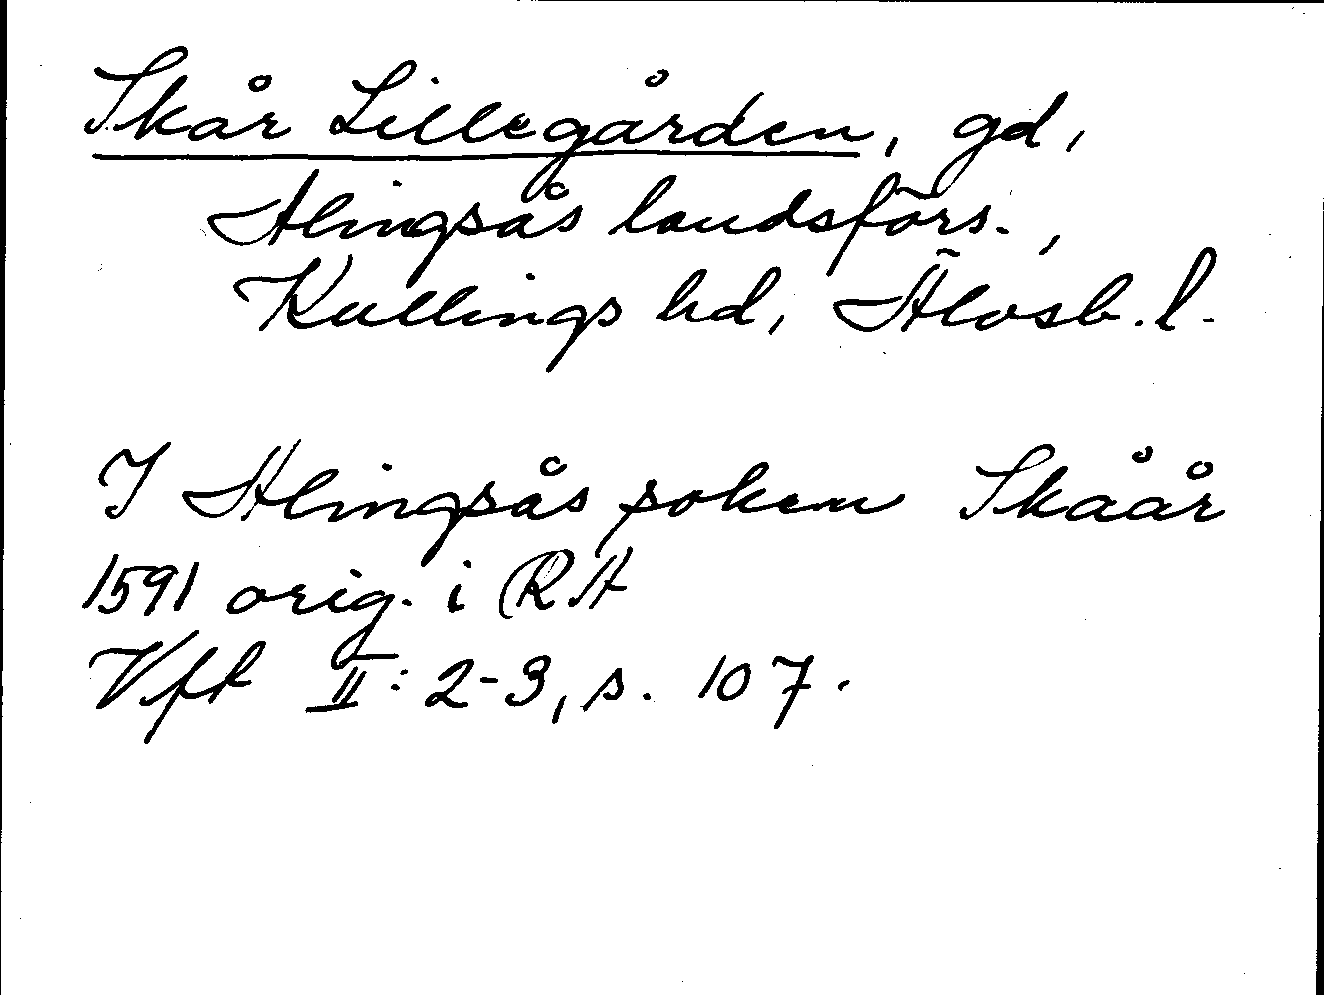 Skår Lillegården, gd,
Alingsås landsförs.,
Kullings hd, Älvsb. l.
I Alingsås soken Skåår
1591 orig. i RA
Vft II: 2-3, s. 107.